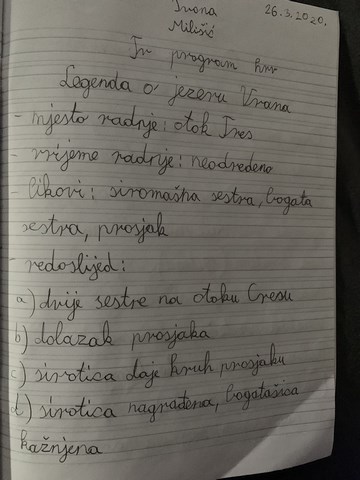 Ivona
26.3.2020.
Milišić
Tv program hrv
Legenda o jezeru Vrana
- mjesto radnje: otok Cres
- vrijeme radnje: neodređeno
- likovi: siromašna sestra, bogata
sestra, prosjak
- redoslijed:
a) dvije sestre na otoku Cresu
b) dolazak prosjaka
c) sirotica daje kruh prosjaku
d) sirotica nagrađena, bogatašica
kažnjena